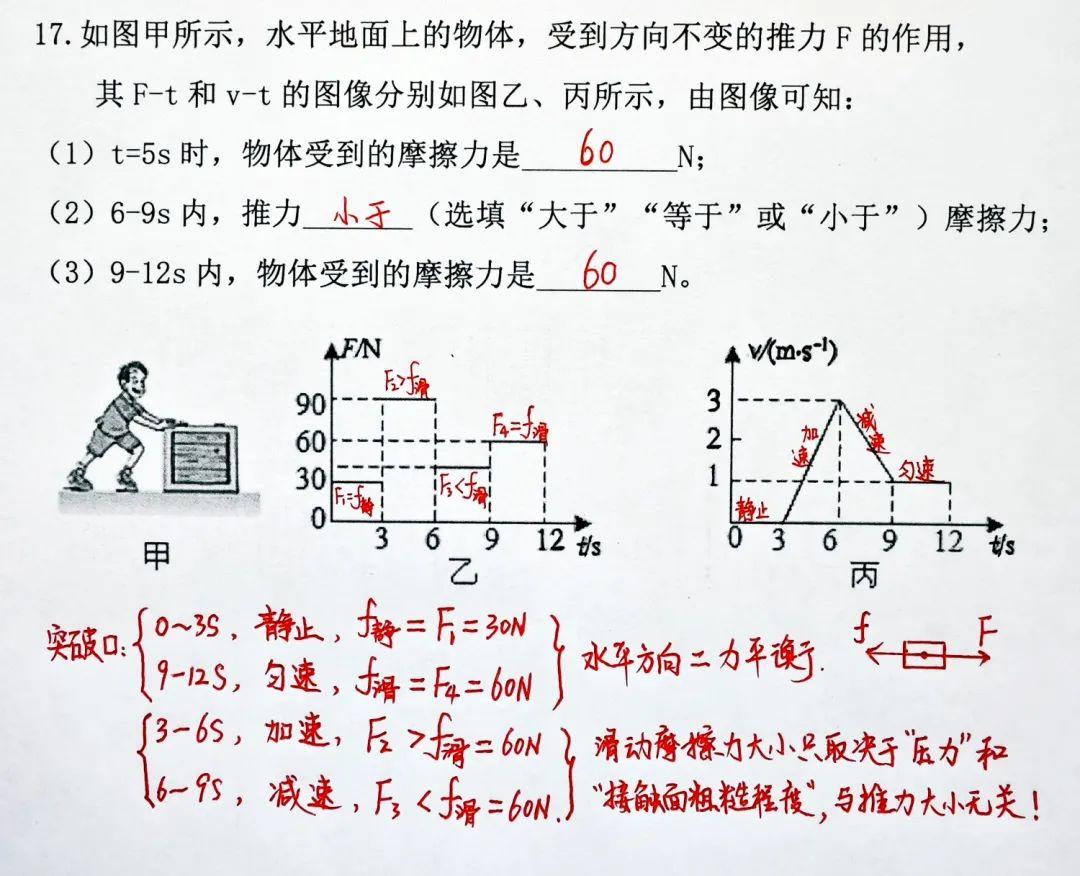 17.如图甲所示，水平地面上的物体，受到方向不变的推力F的作用，
其F-t和v-t的图像分别如图乙、丙所示，由图像可知：
（1）t=5s时，物体受到的摩擦力是 60 N；
（2）6-9s内，推力 小于 （选填“大于”“等于”或“小于”）摩擦力；
（3）9-12s内，物体受到的摩擦力是 60 N。
甲
F/N
F₂>f滑
90
F₄=f滑
60
30
F₁=f静
F₃<f滑
0
3 6 9 12 t/s
乙
v/(m·s⁻¹)
3
加速
减速
2
匀速
1
静止
0 3 6 9 12 t/s
丙
突破口：
0~3S，静止，f静=F₁=30N
9-12S，匀速，f滑=F₄=60N
水平方向二力平衡.
f F
3-6S，加速，F₂>f滑=60N
6~9S，减速，F₃<f滑=60N.
滑动摩擦力大小只取决于“压力”和
“接触面粗糙程度”，与推力大小无关！